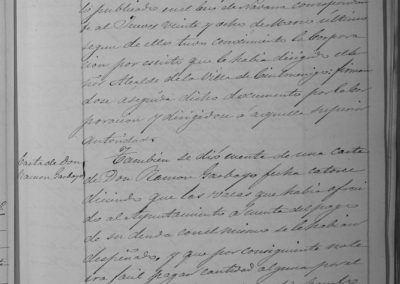 lo publicado en el Eco de Navarra correspondien
te al Jueves Veinte y ocho de Marzo ultimo
segun de ello tuvo conocimiento la Corpora
cion por escrito que le habia dirigido el Se
ñor Alcalde de la Villa de Cintruenigo; firman
dose aseguida dicho documento por la Cor
poracion y dirigiendo a aquella superior
autoridad.
Carta de Don
Ramon Garbayo
Tambien se dio cuenta de una carta
de Don Ramon Garbayo fecha catorce
diciendo que las vacas que habia ofreci
do al Ayuntamiento a cuenta del pago
de su deuda con el mismo se le habian
despeñado y que por consiguiente no le
era facil pagar cantidad alguna por el